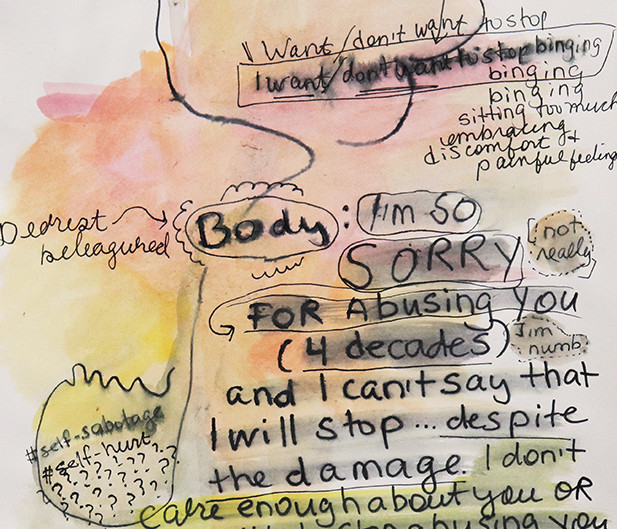 "Want/don't want to stop
I want/don't want to stop binging
binging
binging
sitting too much
embracing
discomfort +
painful feeling
Dearest
beleagured
Body: I'm SO
SORRY
[not
really]
FOR ABUSING YOU
(4 decades)
I'm
numb
and I can't say that
I will stop... despite
the damage. I don't
care enough about you OR
#self-sabotage
#self-hurt
? ? ? ? ? ? ? ?
abusing you